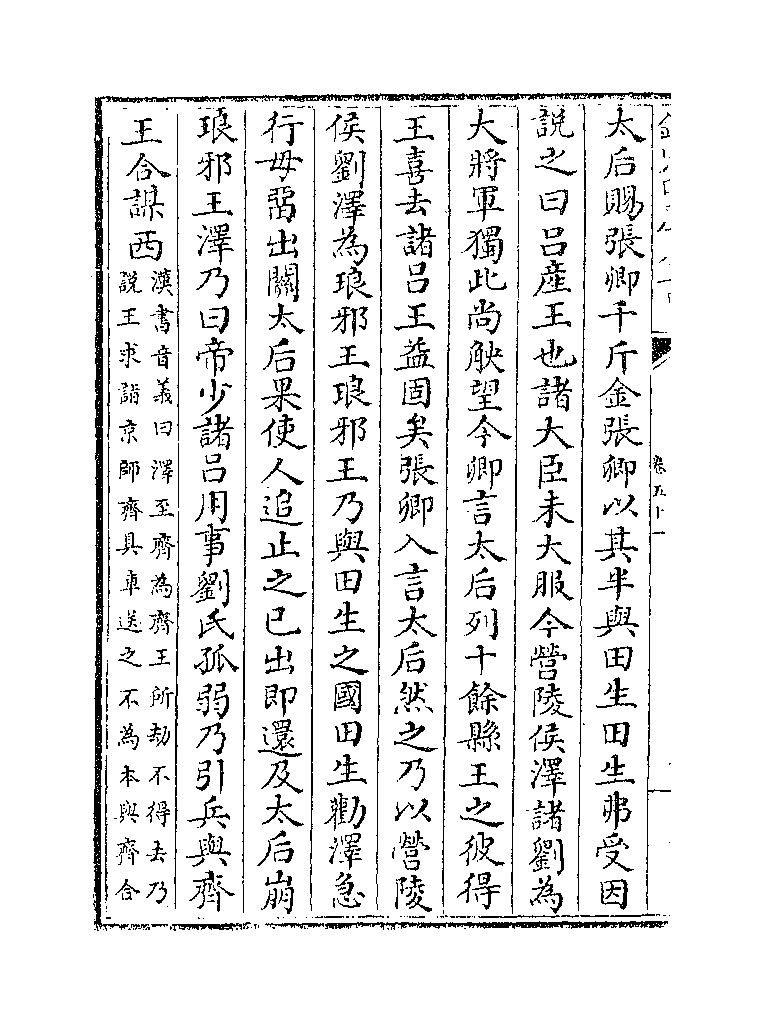 卷五十一
太后賜張卿千斤金張卿以其半與田生田生弗受因
説之曰吕産王也諸大臣未大服今營陵侯澤諸劉為
大將軍獨此尚觖望今卿言太后列十餘縣王之彼得
王喜去諸吕王益固矣張卿入言太后然之乃以營陵
侯劉澤為琅邪王琅邪王乃與田生之國田生勸澤急
行毋留出關太后果使人追止之已出即還及太后崩
琅邪王澤乃曰帝少諸吕用事劉氏孤弱乃引兵與齊
王合謀西
漢書音義曰澤至齊為齊王所劫不得去乃
説王求詣京師齊具車送之不為本與齊合